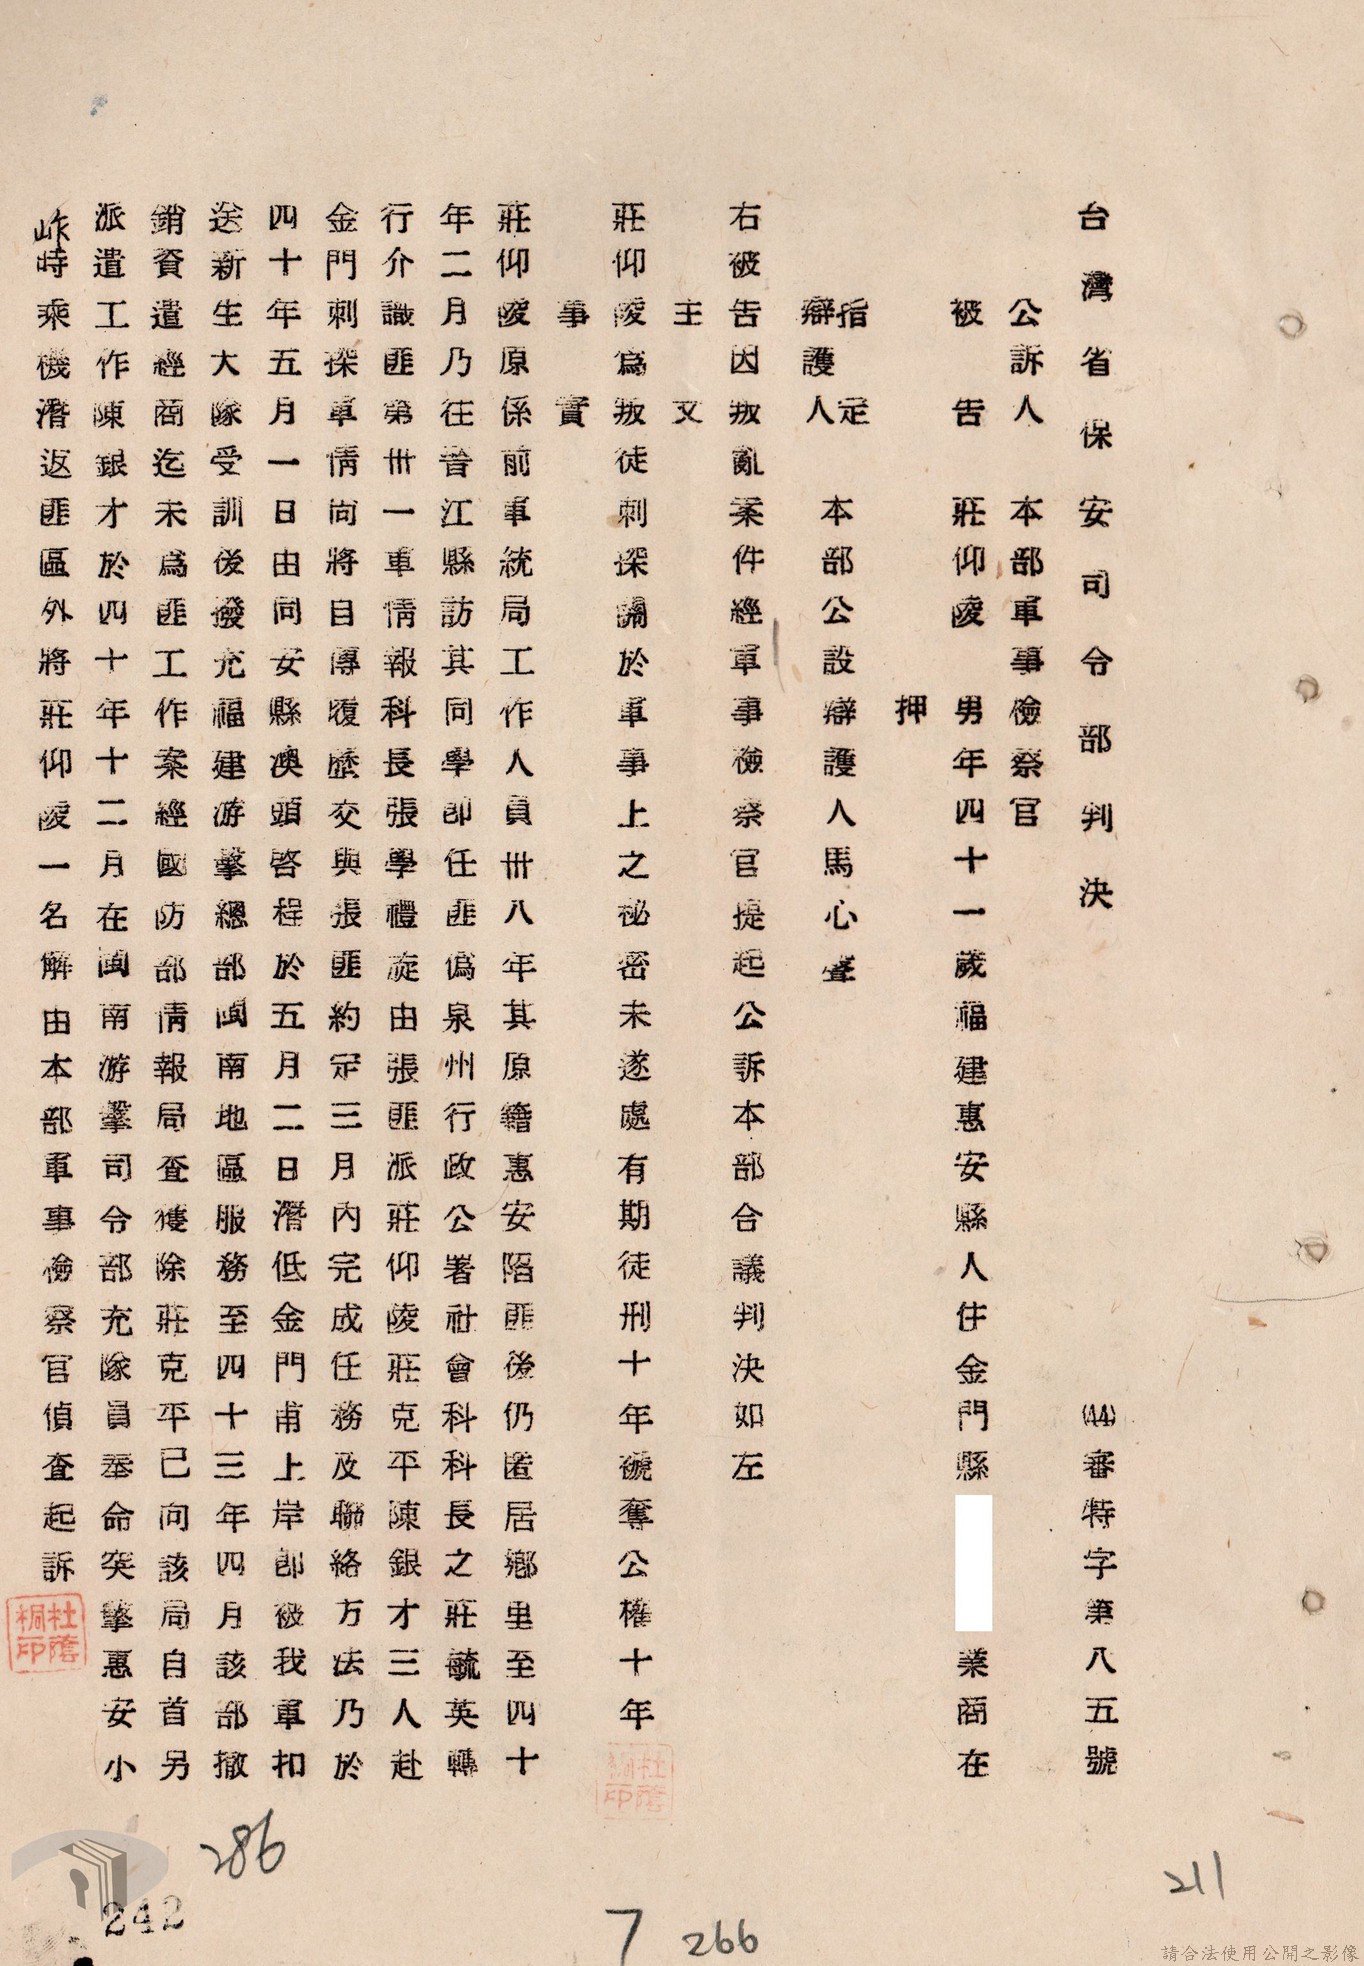 台灣省保安司令部判決
(44)審特字第八五號
公訴人 本部軍事檢察官
被告 莊仰陵 男年四十一歲福建惠安縣人住金門縣 業商在
押
指定
辯護人 本部公設辯護人馬心聲
右被告因叛亂案件經軍事檢察官提起公訴本部合議判決如左
主文
莊仰陵爲叛徒刺探關於軍事上之祕密未遂處有期徒刑十年褫奪公權十年
事實
莊仰陵原係前軍統局工作人員卅八年其原籍惠安陷匪後仍匿居鄉里至四十
年二月乃往晉江縣訪其同學卽任匪僞泉州行政公署社會科科長之莊毓英轉
行介識匪第卅一軍情報科長張學禮旋由張匪派莊仰陵莊克平陳銀才三人赴
金門刺探軍情向將目傳履歷交與張匪約定三月內完成任務及聯絡方法乃於
四十年五月一日由同安縣澳頭啓程於五月二日潛低金門甫上岸卽被我軍扣
送新生大隊受訓後撥充福建游擊總部閩南地區服務至四十三年四月該部撤
銷資遣經商迄未爲匪工作案經國防部情報局查獲除莊克平已向該局自首另
派遣工作陳銀才於四十年十二月在閩南游擊司令部充隊員奉命突擊惠安小
岞時乘機潛返匪區外將莊仰陵一名解由本部軍事檢察官偵查起訴
杜蔭桐印
杜蔭桐印
286
242
7
266
211
請合法使用公開之影像